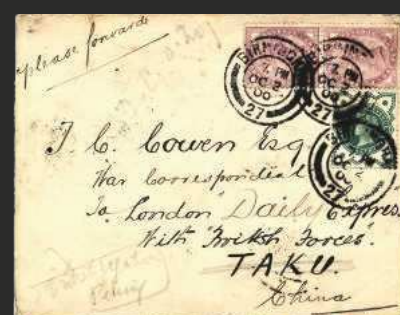 please forward
BIRMINGHAM
7 PM
OC 2
00
27
J. C. Cowen Esq
War Correspondent
To London "Daily Express
With "British Forces".
TAKU.
China
Peking